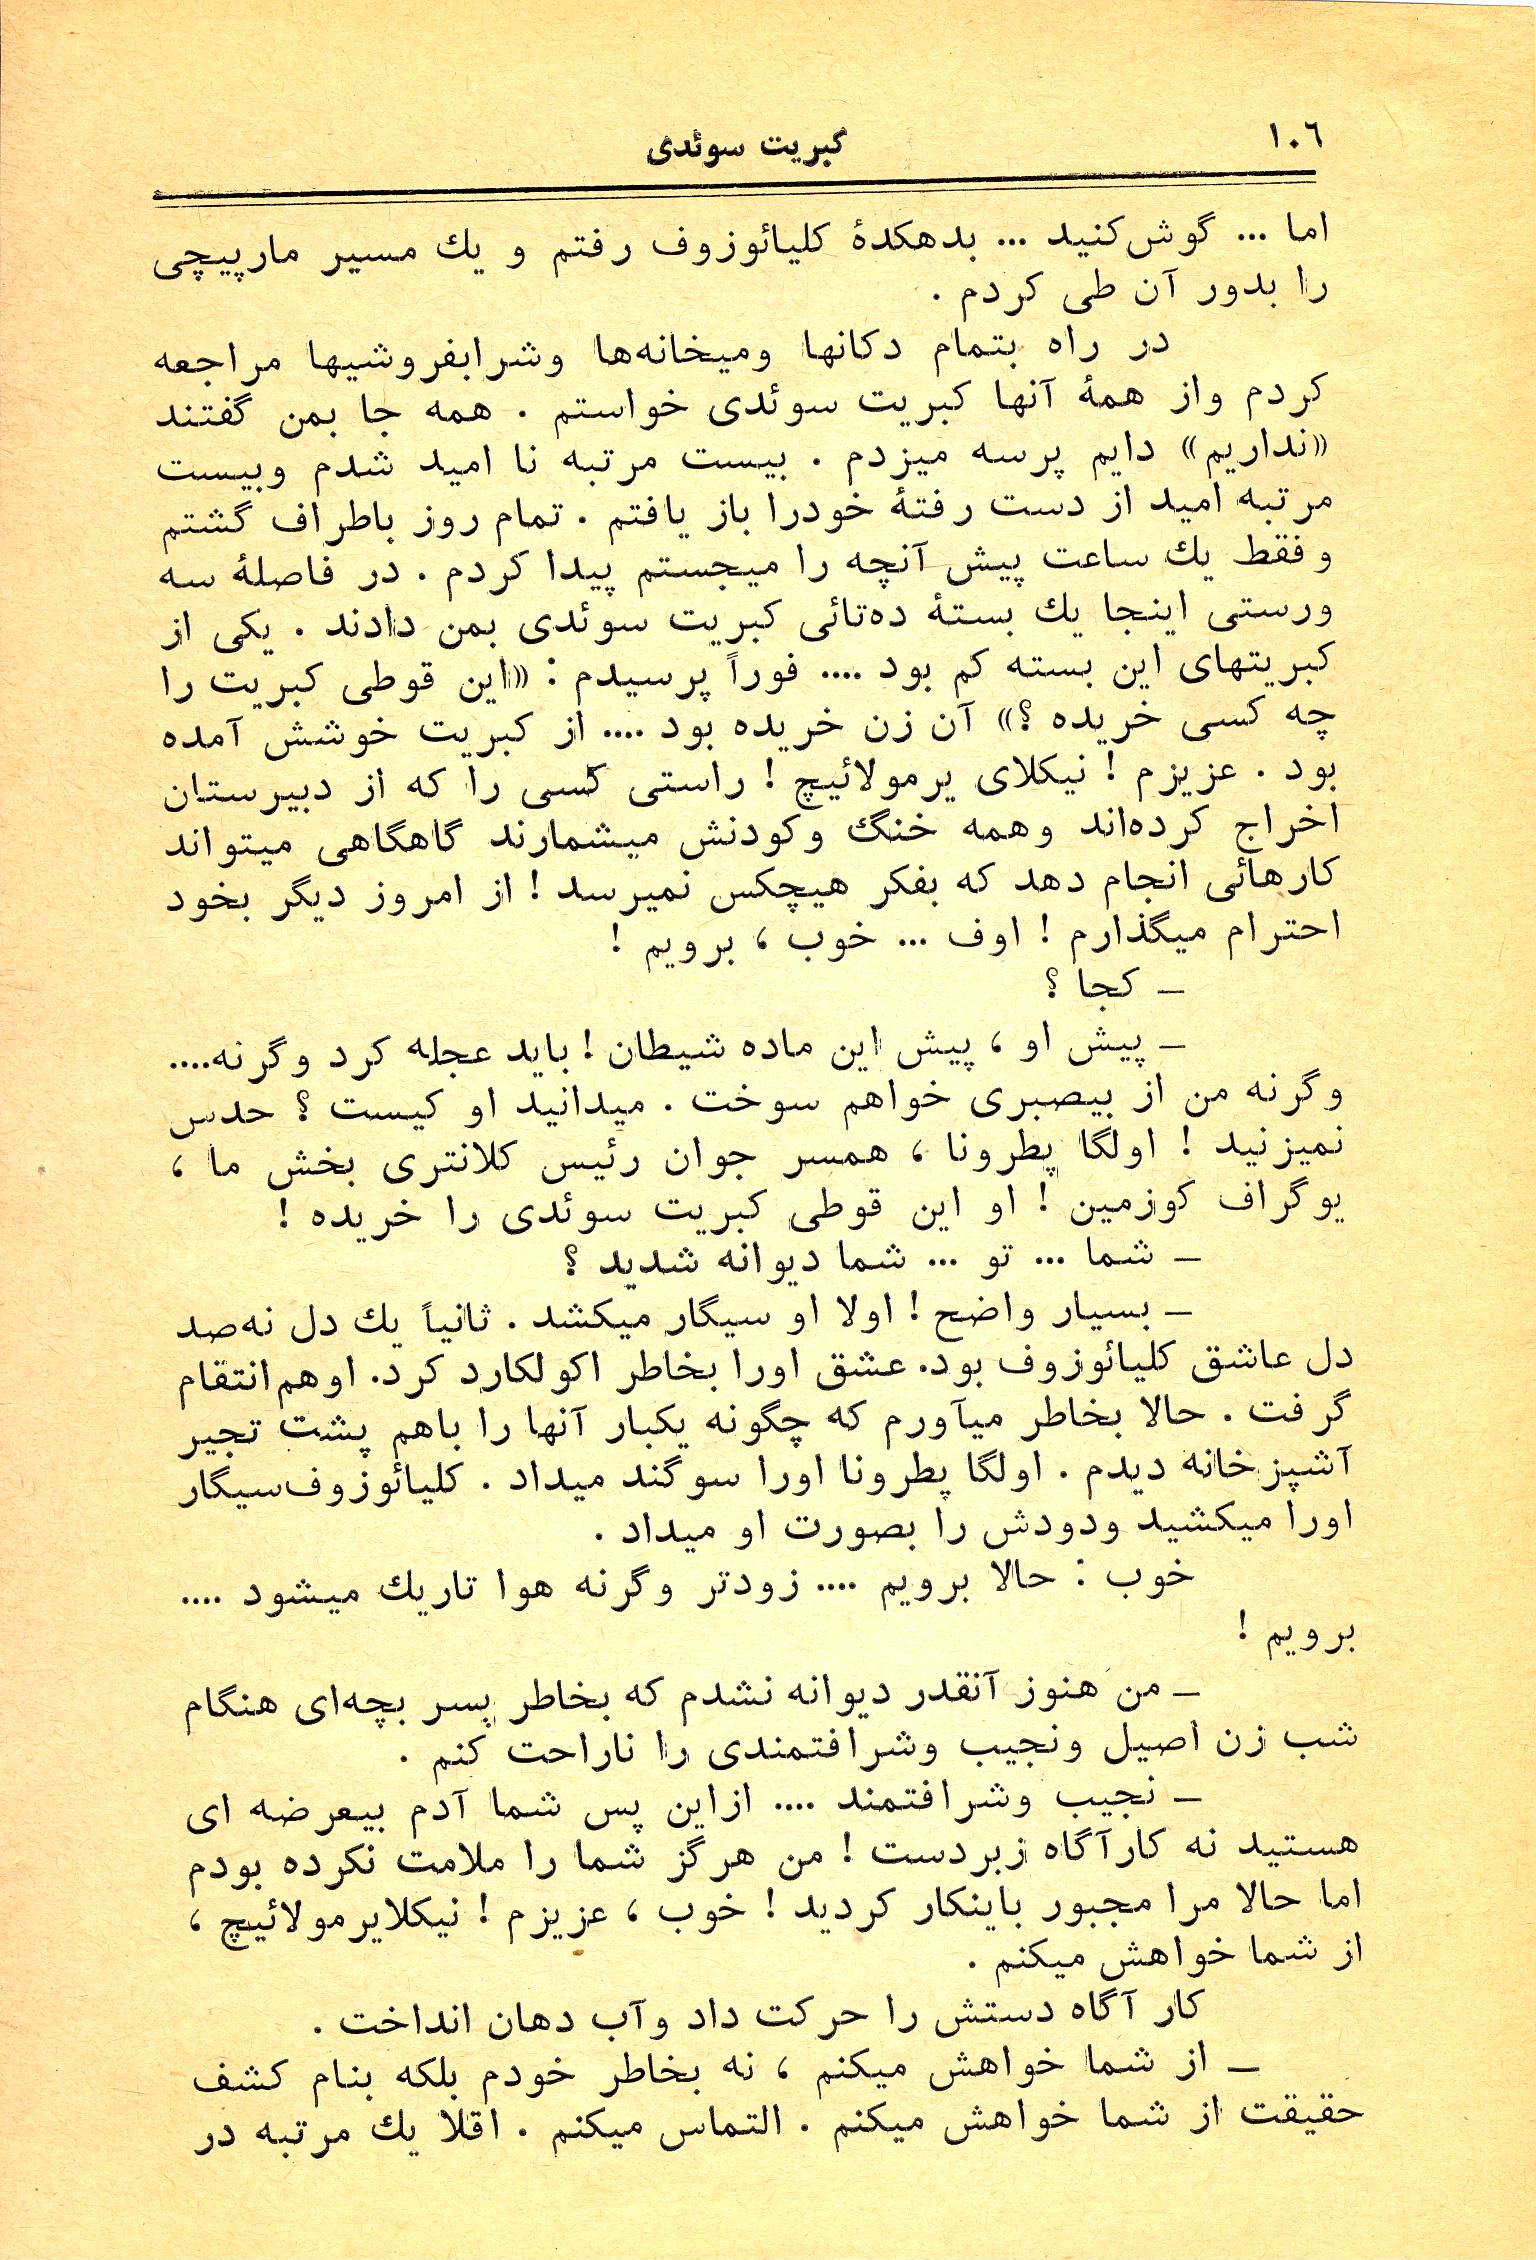 ١٠٦
كبريت سوئدى
اما ... گوش‌كنيد ... بدهكدهٔ كليائوزوف رفتم و يك مسير مارپيچى
را بدور آن طى كردم .
در راه بتمام دكانها وميخانه‌ها وشرابفروشيها مراجعه
كردم واز همهٔ آنها كبريت سوئدى خواستم . همه جا بمن گفتند
«نداريم» دايم پرسه ميزدم . بيست مرتبه نا اميد شدم وبيست
مرتبه اميد از دست رفتهٔ خودرا باز يافتم . تمام روز باطراف گشتم
وفقط يك ساعت پيش آنچه را ميجستم پيدا كردم . در فاصلهٔ سه
ورستى اينجا يك بستهٔ ده‌تائى كبريت سوئدى بمن دادند . يكى از
كبريتهاى اين بسته كم بود .... فوراً پرسيدم : «اين قوطى كبريت را
چه كسى خريده ؟» آن زن خريده بود .... از كبريت خوشش آمده
بود . عزيزم ! نيكلاى يرمولائيچ ! راستى كسى را كه از دبيرستان
اخراج كرده‌اند وهمه خنگ وكودنش ميشمارند گاهگاهى ميتواند
كارهائى انجام دهد كه بفكر هيچكس نميرسد ! از امروز ديگر بخود
احترام ميگذارم ! اوف ... خوب ، برويم !
ـ كجا ؟
ـ پيش او ، پيش اين ماده شيطان ! بايد عجله كرد وگرنه....
وگرنه من از بيصبرى خواهم سوخت . ميدانيد او كيست ؟ حدس
نميزنيد ! اولگا پطرونا ، همسر جوان رئيس كلانترى بخش ما ،
يوگراف كوزمين ! او اين قوطى كبريت سوئدى را خريده !
ـ شما ... تو ... شما ديوانه شديد ؟
ـ بسيار واضح ! اولا او سيگار ميكشد . ثانياً يك دل نه‌صد
دل عاشق كليائوزوف بود. عشق اورا بخاطر اكولكارد كرد. اوهم‌انتقام
گرفت . حالا بخاطر ميآورم كه چگونه يكبار آنها را باهم پشت تجير
آشپزخانه ديدم . اولگا پطرونا اورا سوگند ميداد . كليائوزوف‌سيگار
اورا ميكشيد ودودش را بصورت او ميداد .
خوب : حالا برويم .... زودتر وگرنه هوا تاريك ميشود ....
برويم !
ـ من هنوز آنقدر ديوانه نشدم كه بخاطر پسر بچه‌اى هنگام
شب زن اصيل ونجيب وشرافتمندى را ناراحت كنم .
ـ نجيب وشرافتمند .... ازاين پس شما آدم بيعرضه اى
هستيد نه كارآگاه زبردست ! من هرگز شما را ملامت نكرده بودم
اما حالا مرا مجبور باينكار كرديد ! خوب ، عزيزم ! نيكلايرمولائيچ ،
از شما خواهش ميكنم .
كار آگاه دستش را حركت داد وآب دهان انداخت .
ـ از شما خواهش ميكنم ، نه بخاطر خودم بلكه بنام كشف
حقيقت از شما خواهش ميكنم . التماس ميكنم . اقلا يك مرتبه در